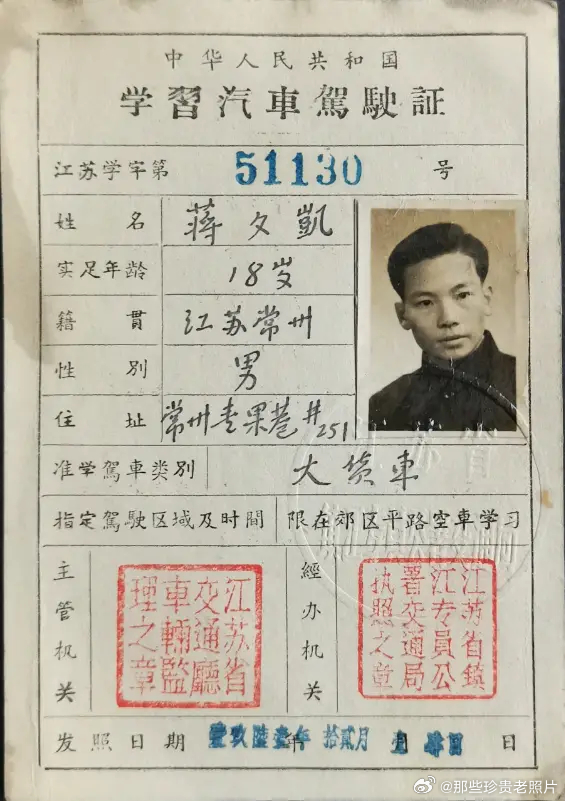 中华人民共和国
学習汽車駕駛証
江苏学字第 51130 号
姓名 蒋夕凱
实足年龄 18岁
籍贯 江苏常州
性别 男
住址 常州青果巷#251
准学駕車类别 大货車
指定駕駛区域及时間 限在郊区平路空車学习
主管机关 江苏省交通廳車輛監理之章
經办机关 江苏省鎮江专員公署交通局执照之章
发照日期 壹玖陸壹年 年 拾貳月 月 日
@那些珍贵老照片